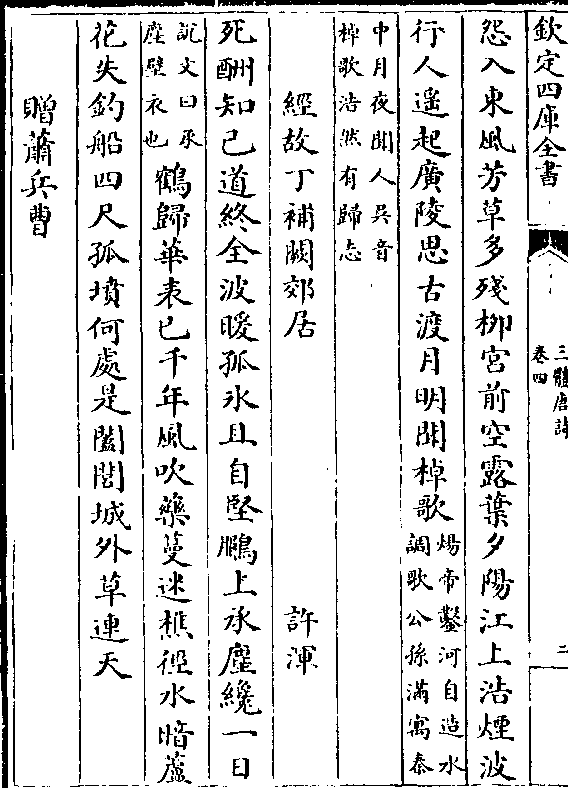 欽定四庫全書
三體唐詩
卷四
二
怨入東風芳草多殘柳宮前空露葉夕陽江上浩煙波
行人遙起廣陵思古渡月明聞棹歌
煬帝鑿河自造水
調歌公孫滿寓泰
中月夜聞人吳音
棹歌浩然有歸志
經故丁補闕郊居 許渾
死酬知己道終全波暖孤氷且自堅鵬上承塵纔一日
說文曰承
塵壁衣也
鶴歸華表已千年風吹藥蔓迷樵徑水暗蘆
花失釣船四尺孤墳何處是闔閭城外草連天
贈蕭兵曹